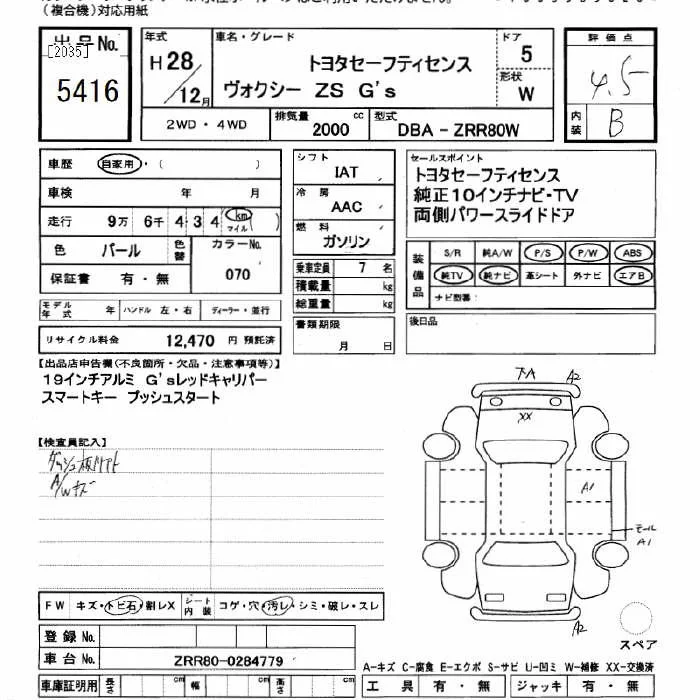 （複合機）対応用紙
出品No.
[2035]
5416
年式
H28／12月
車名・グレード
トヨタセーフティセンス
ヴォクシー ZS G's
ドア
5
形状
W
評価点
4.5
内装
B
2WD・4WD
排気量
2000 cc
型式
DBA - ZRR80W
車歴 自家用・( )
車検 年 月
走行 9万 6千 4 3 4 km マイル ( )
色 パール
色替
カラーNo.
070
保証書 有・無
モデル年式 年 ハンドル 左・右 ディーラー・並行
リサイクル料金 12,470 円 預託済
シフト
IAT
冷房
AAC
燃料
ガソリン
乗車定員 7 名
積載量 kg
総重量 kg
書類期限
月 日
セールスポイント
トヨタセーフティセンス
純正10インチナビ・TV
両側パワースライドドア
装備品
S/R 純A/W P/S P/W ABS
純TV 純ナビ 革シート 外ナビ エアB
ナビ型番：
後日品
【出品店申告欄(不良箇所・欠品・注意事項等)】
19インチアルミ G'sレッドキャリパー
スマートキー プッシュスタート
【検査員記入】
A/Wキズ
A2
XX
A1
モール
A1
A2
FW キズ・トビ石・割レX
シート内装 コゲ・穴・汚レ・シミ・破レ・スレ
登録No.
車台No. ZRR80-0284779
車庫証明用 長さ cm 幅 cm 高さ cm
スペア
A-キズ C-腐食 E-エクボ S-サビ U-凹ミ W-補修 XX-交換済
工具 有・無 ジャッキ 有・無